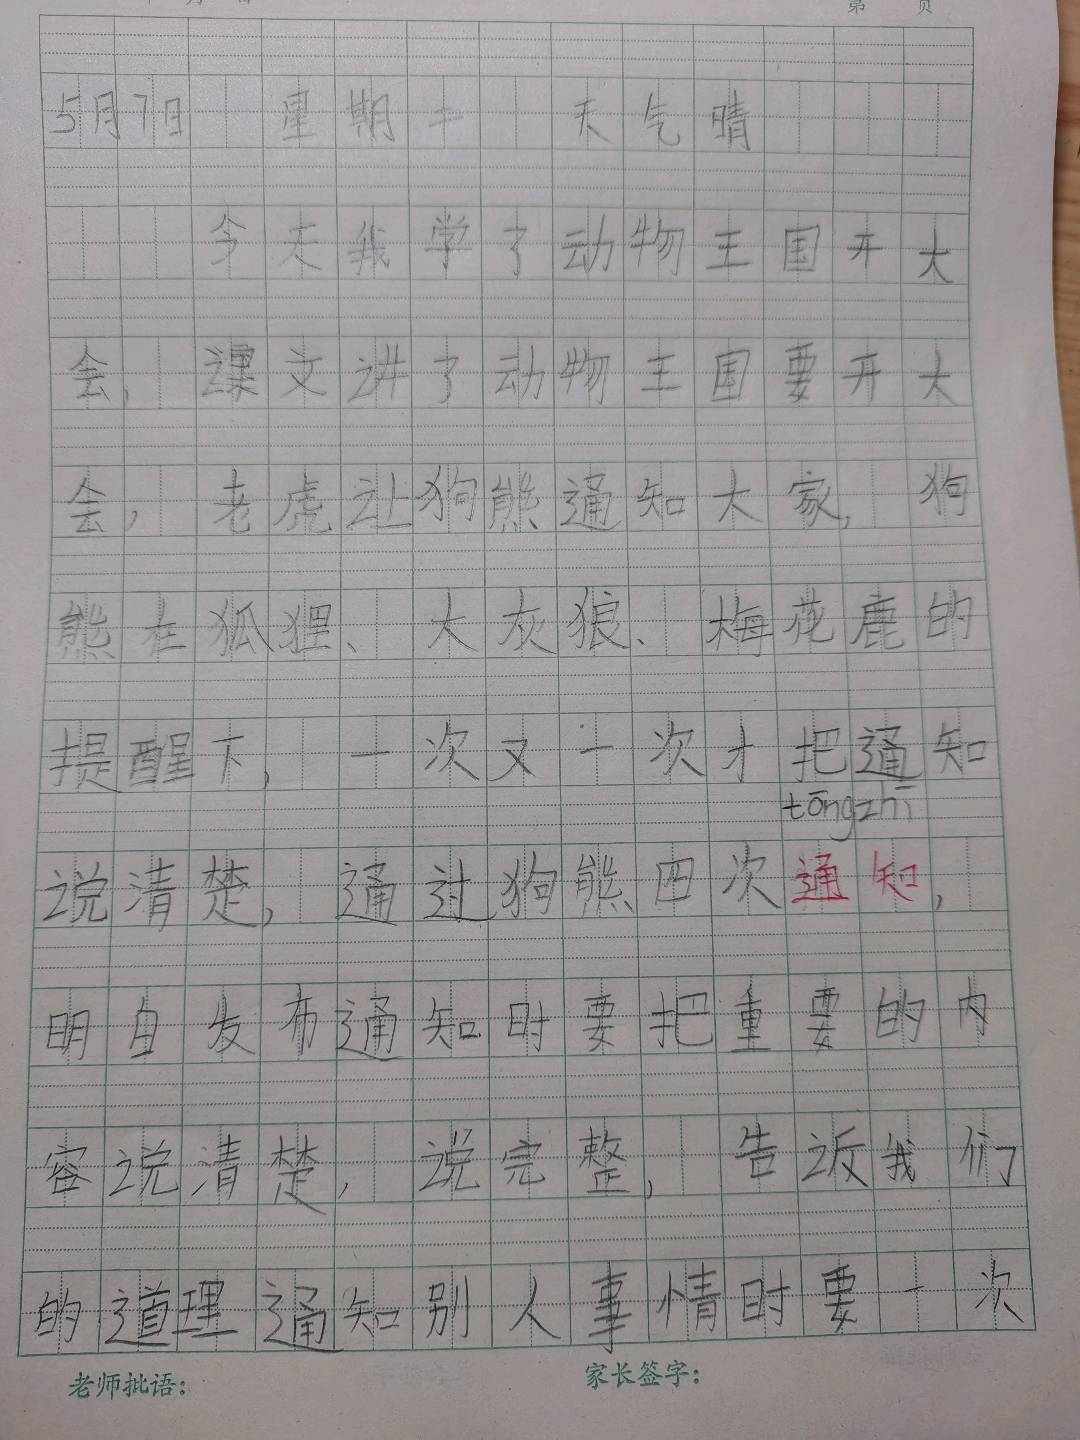 第 页
5月7日 星期二 天气晴
今天我学了动物王国开大
会，课文讲了动物王国要开大
会，老虎让狗熊通知大家，狗
熊在狐狸、大灰狼、梅花鹿的
提醒下，一次又一次才把通知
tōngzhī
说清楚，通过狗熊四次通知，
明白发布通知时要把重要的内
容说清楚，说完整，告诉我们
的道理通知别人事情时要一次
老师批语： 家长签字：